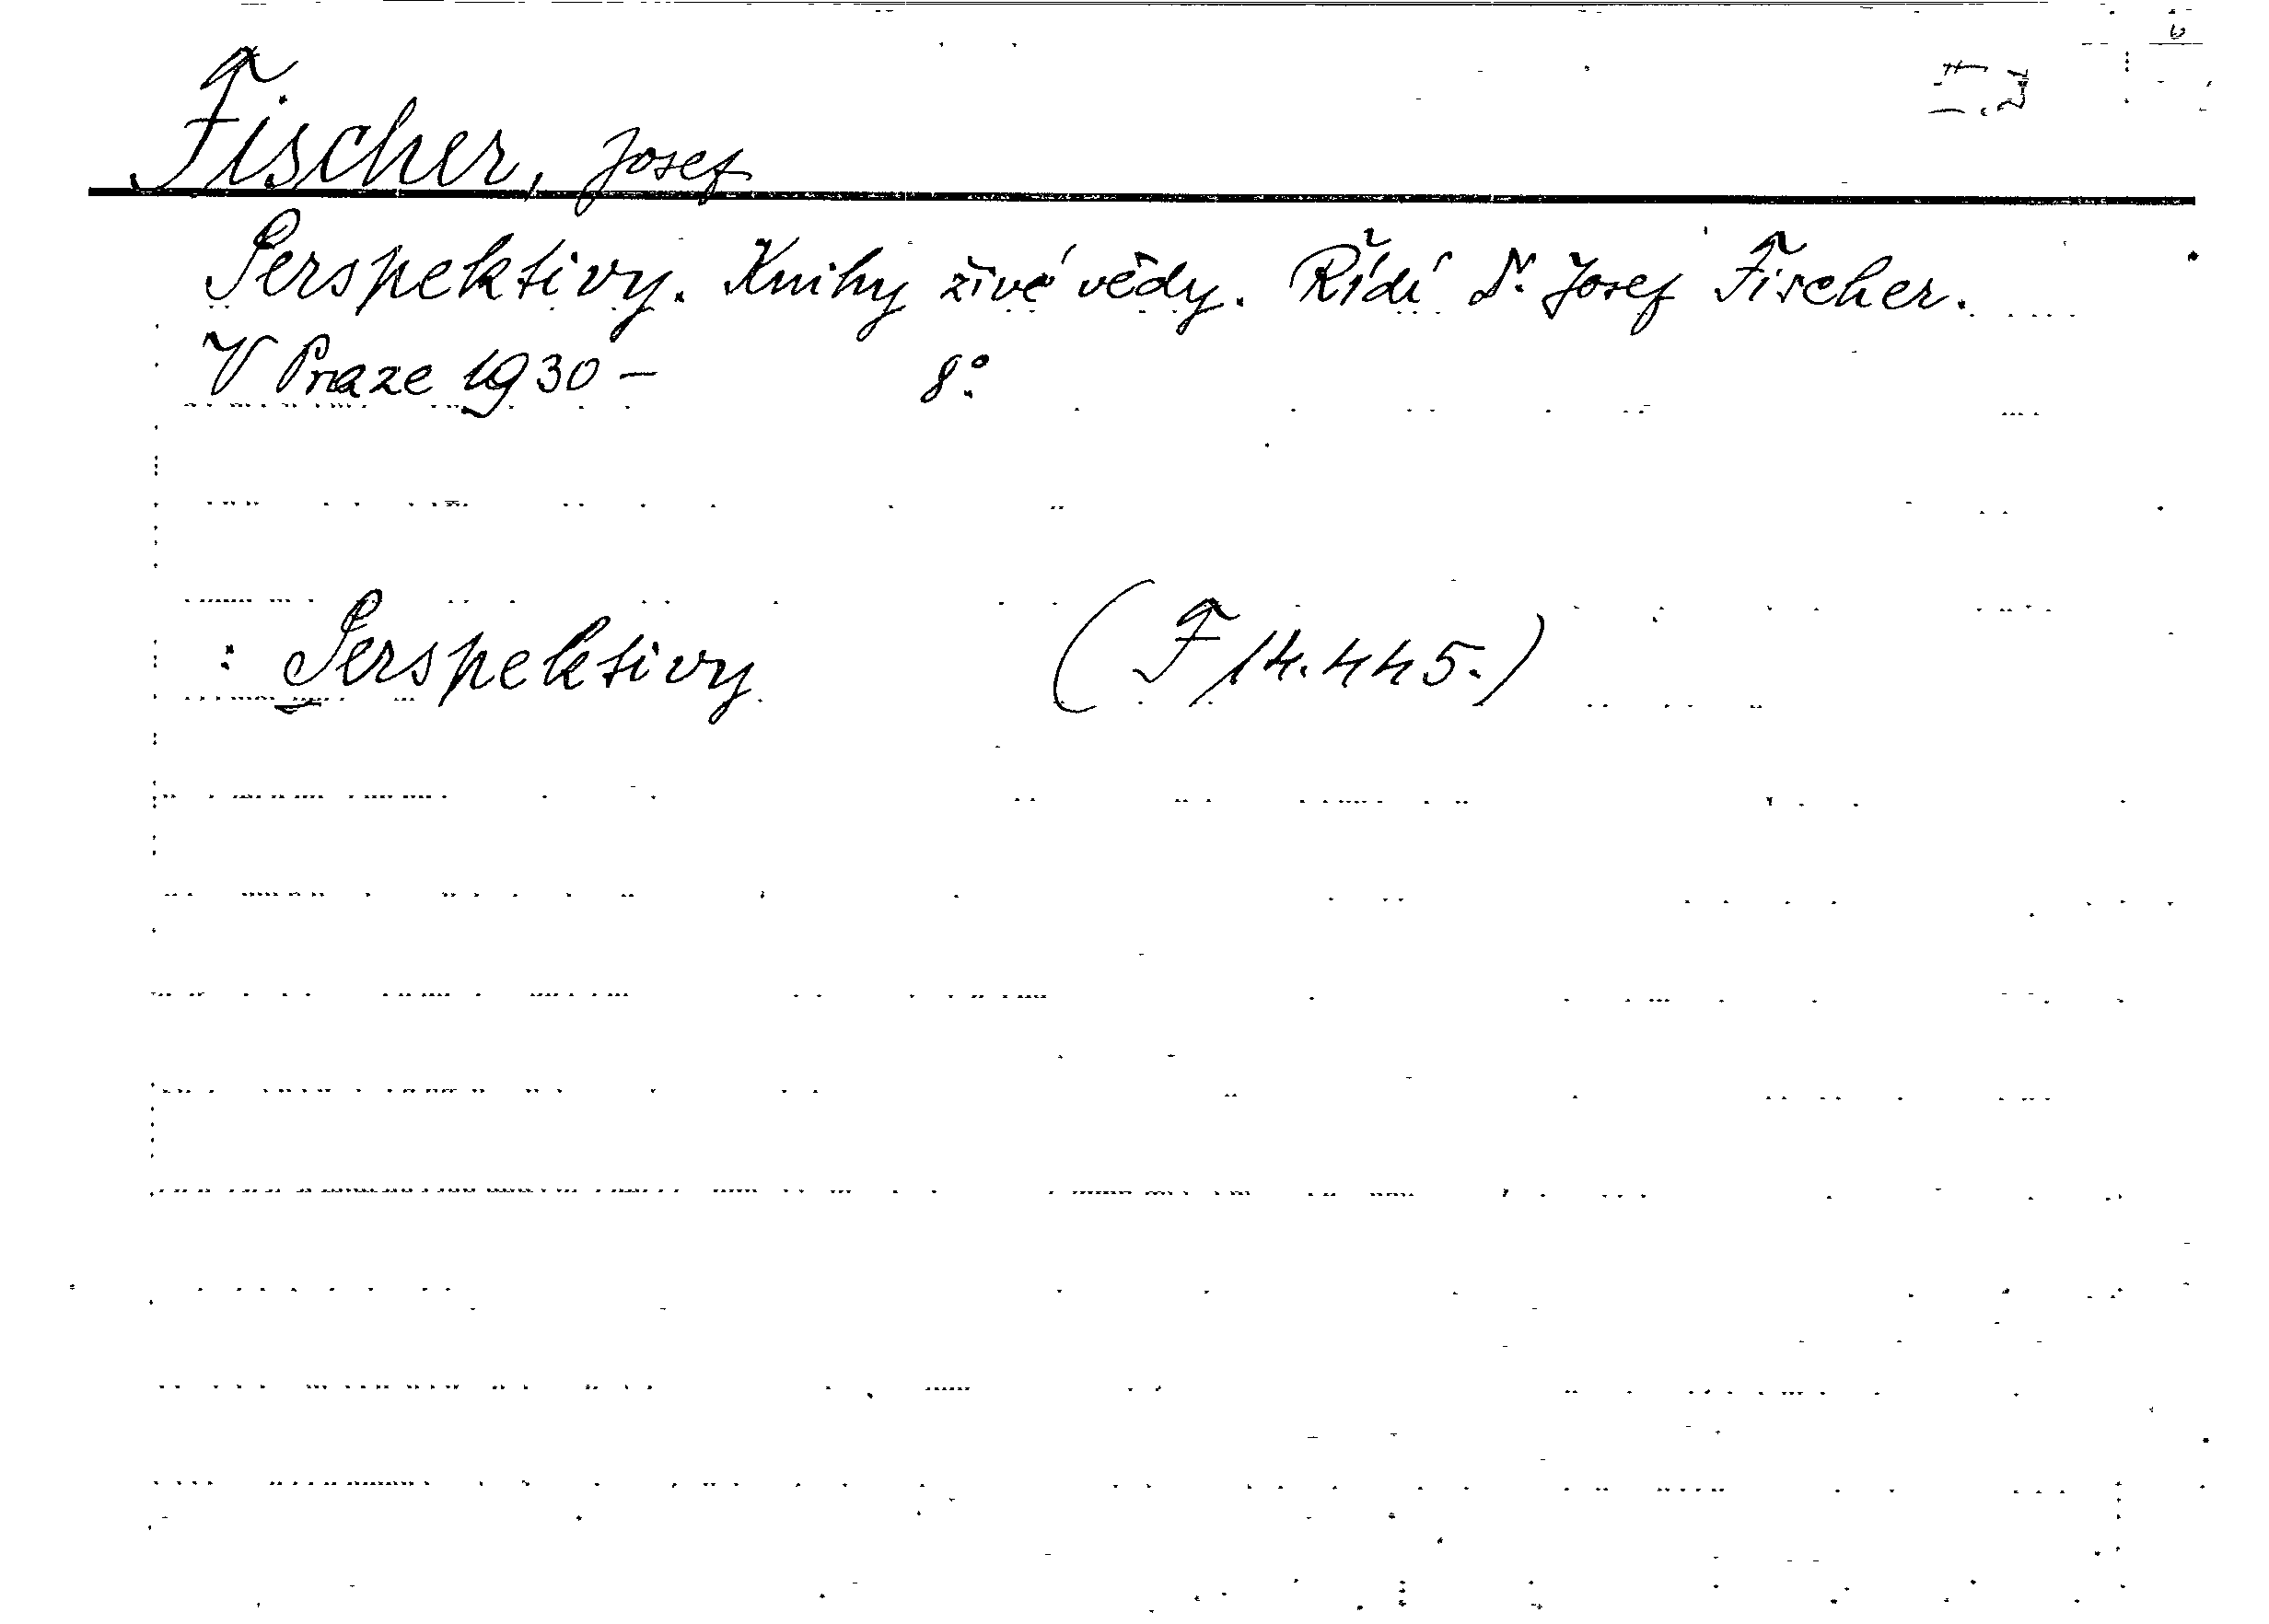 Fischer, Josef
Perspektivy. Knihy živé vědy. Řídí Dr. Josef Fischer.
V Praze 1930 – 8°.
: Perspektivy (F 14.445.)